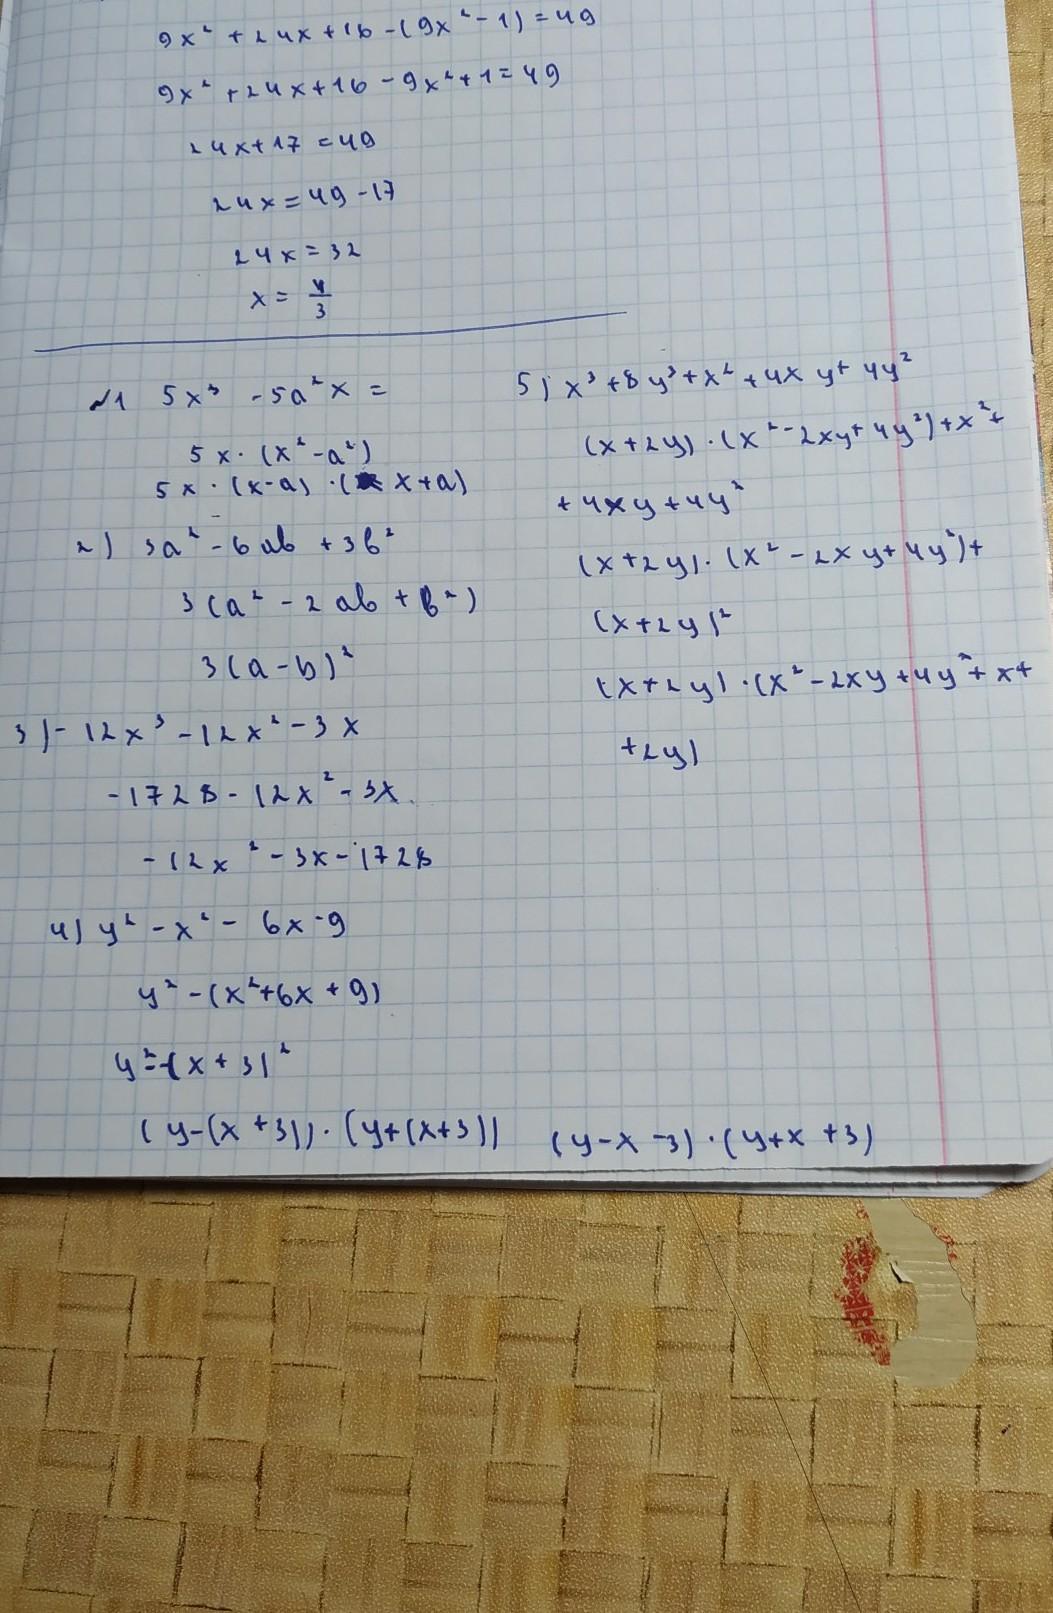 9x² + 24x + 16 - (9x² - 1) = 49
9x² + 24x + 16 - 9x² + 1 = 49
24x + 17 = 49
24x = 49 - 17
24x = 32
x = 4/3
№1 5x³ - 5a²x =
5x · (x² - a²)
5x · (x-a) · (x+a)
2) 3a² - 6ab + 3b²
3(a² - 2ab + b²)
3(a-b)²
3) - 12x³ - 12x² - 3x
-1728 - 12x² - 3x
-12x² - 3x - 1728
4) y² - x² - 6x - 9
y² - (x² + 6x + 9)
y² - (x + 3)²
(y-(x+3)) · (y+(x+3)) (y-x-3) · (y+x+3)
5) x³ + 8y³ + x² + 4xy + 4y²
(x+2y) · (x² - 2xy + 4y²) + x² +
+ 4xy + 4y²
(x+2y) · (x² - 2xy + 4y²) +
(x+2y)²
(x+2y) · (x² - 2xy + 4y² + x +
+2y)